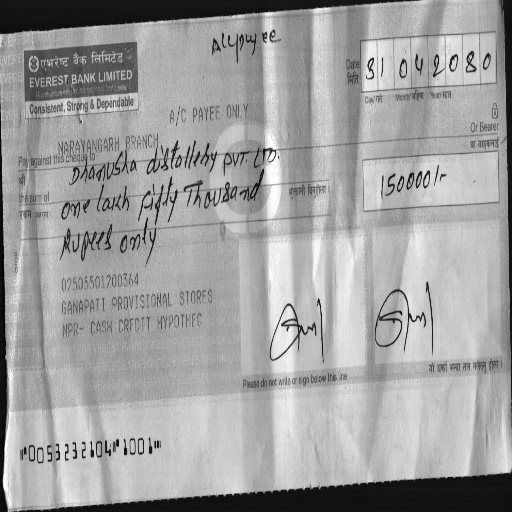 A/C payee
एभरेष्ट बैंक लिमिटेड
EVEREST BANK LIMITED
Consistent, Strong & Dependable
Date 31 04 2080
मिति
Day/गते Month/महिना Year/साल
A/C PAYEE ONLY
NARAYANGARH BRANCH
Pay against this cheque to Dhanusha distollehy PVT. LTD. Or Bearer
श्री वा वाहकलाई
the sum of one lakh fifty Thousand
रकम
Rupees only
150000/-
02505501200364
GANAPATI PROVISIONAL STORES
NPR- CASH CREDIT HYPOTHEC
Please do not write or sign below this line
⑈0053232104⑈1001⑈